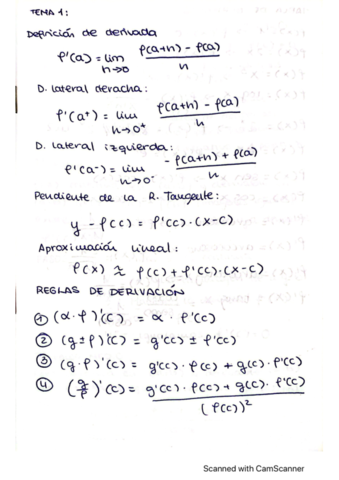 TEMA 1:
Definición de derivada
f'(a) = lim h→0 f(a+h) - f(a) / h
D. lateral derecha:
f'(a⁺) = lim h→0⁺ f(a+h) - f(a) / h
D. lateral izquierda:
f'(a⁻) = lim h→0⁻ -f(a+h) + f(a) / h
Pendiente de la R. Tangente:
y - f(c) = f'(c)·(x-c)
Aproximación lineal:
f(x) ≈ f(c) + f'(c)·(x-c)
REGLAS DE DERIVACIÓN
① (α·f)'(c) = α · f'(c)
② (g±f)'(c) = g'(c) ± f'(c)
③ (g·f)'(c) = g'(c)·f(c) + g(c)·f'(c)
④ (g/f)'(c) = g'(c)·f(c) + g(c)·f'(c) / (f(c))²
Scanned with CamScanner